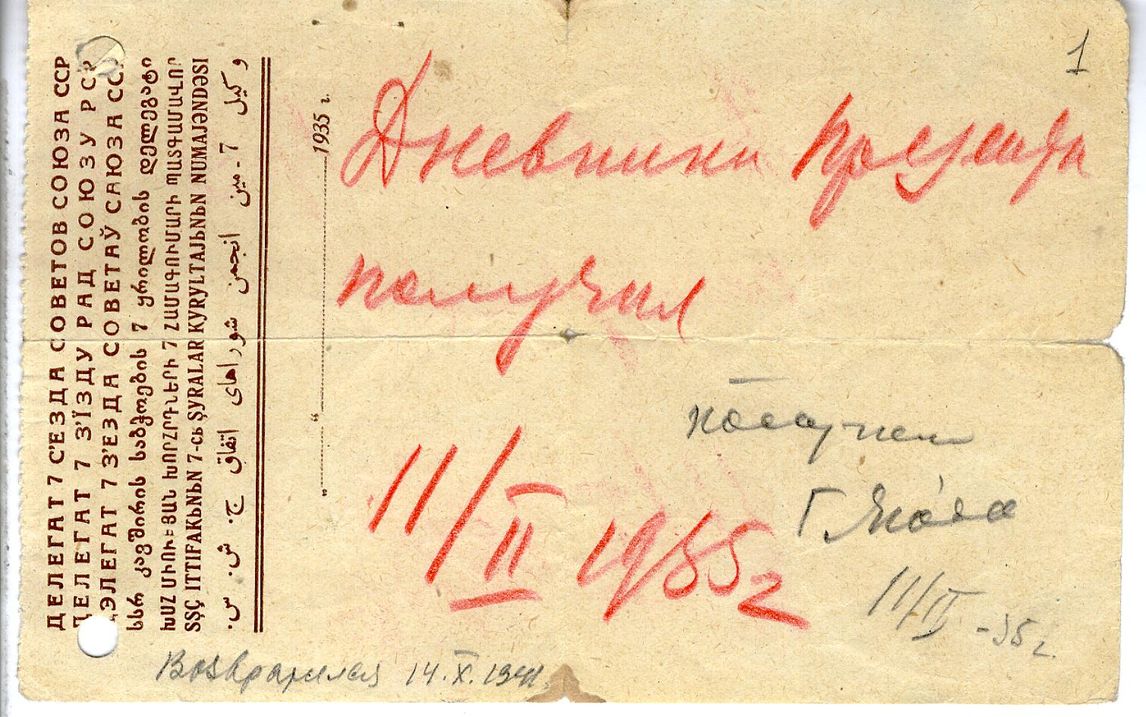 ДЕЛЕГАТ 7 С'ЕЗДА СОВЕТОВ СОЮЗА ССР
ДЕЛЕГАТ 7 З'ЇЗДУ РАД СОЮЗУ РСР
ДЭЛЕГАТ 7 З'ЕЗДА СОВЕТАЎ САЮЗА ССР
სსრ კავშირის საბჭოების 7 ყრილობის დელეგატი
ԽՍՀ ՄԻՈՒԹՅԱՆ ԽՈՐՀՐԴՆԵՐԻ 7 ՀԱՄԱԳՈՒՄԱՐԻ ՊԱՏԳԱՄԱՎՈՐ
SŞÇ ITTIFAKЬNЬN 7-сь ŞVRALAR KYRYLTAJЬNЬN NUMAJƏNDƏSI
وکیل 7 - مین انجمن شوراهای اتفاق ج. ش. س.
" " 1935 г.
1
Дневники
получил
11/II 1935 г
Г.
11/II -35 г.
14.X.1941